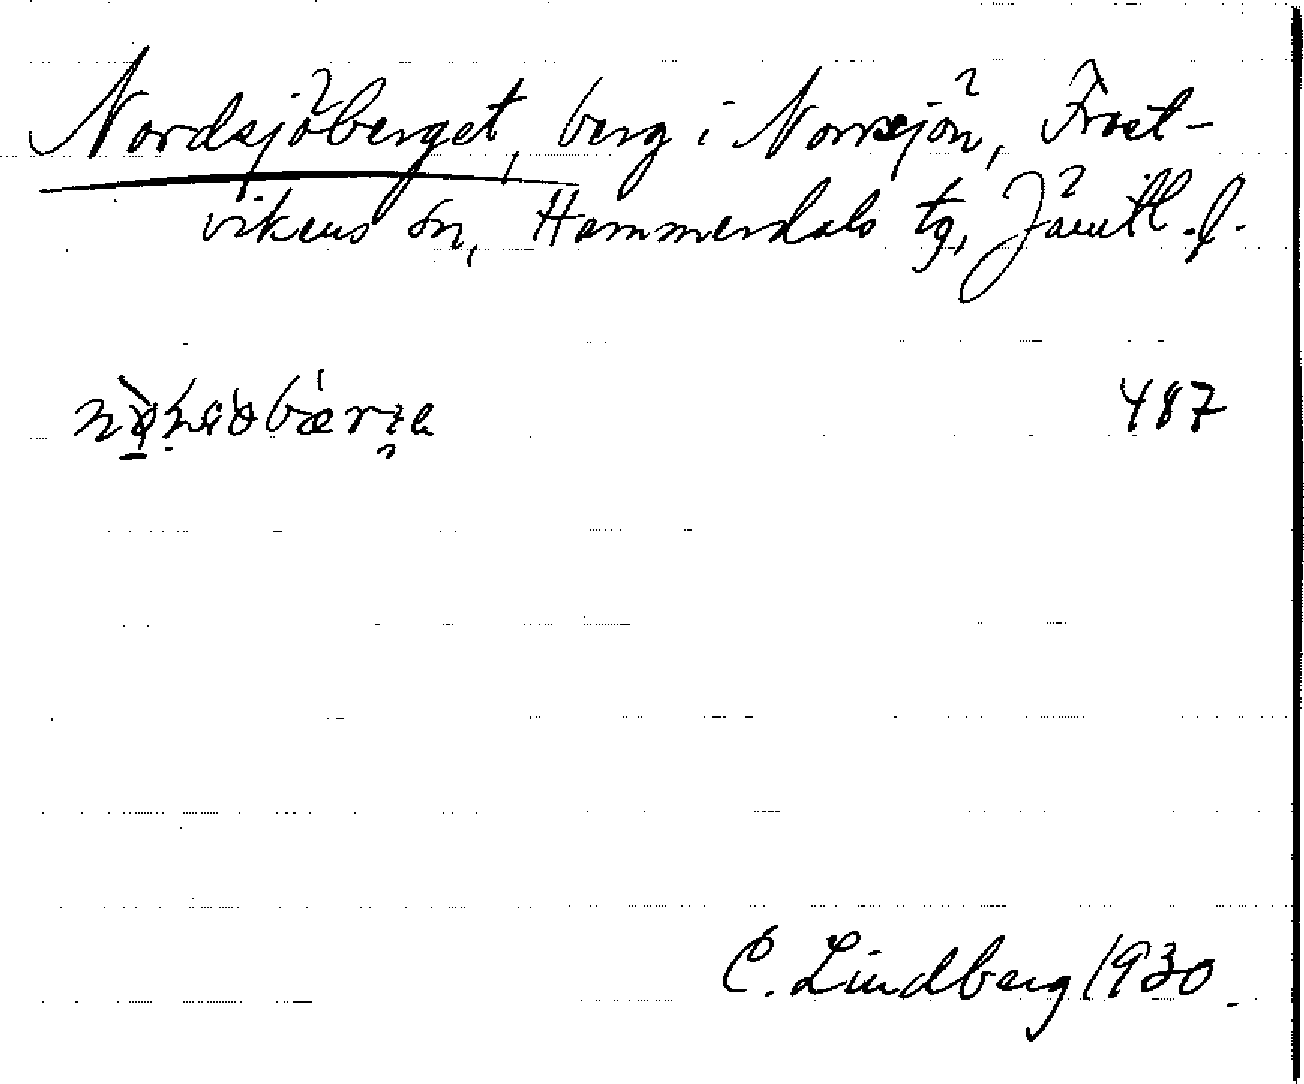 Nordsjöberget, berg i Norrsjön, Frost-
vikens sn, Hammerdals tg, Jämtl. l.
487
C. Lindberg 1930.